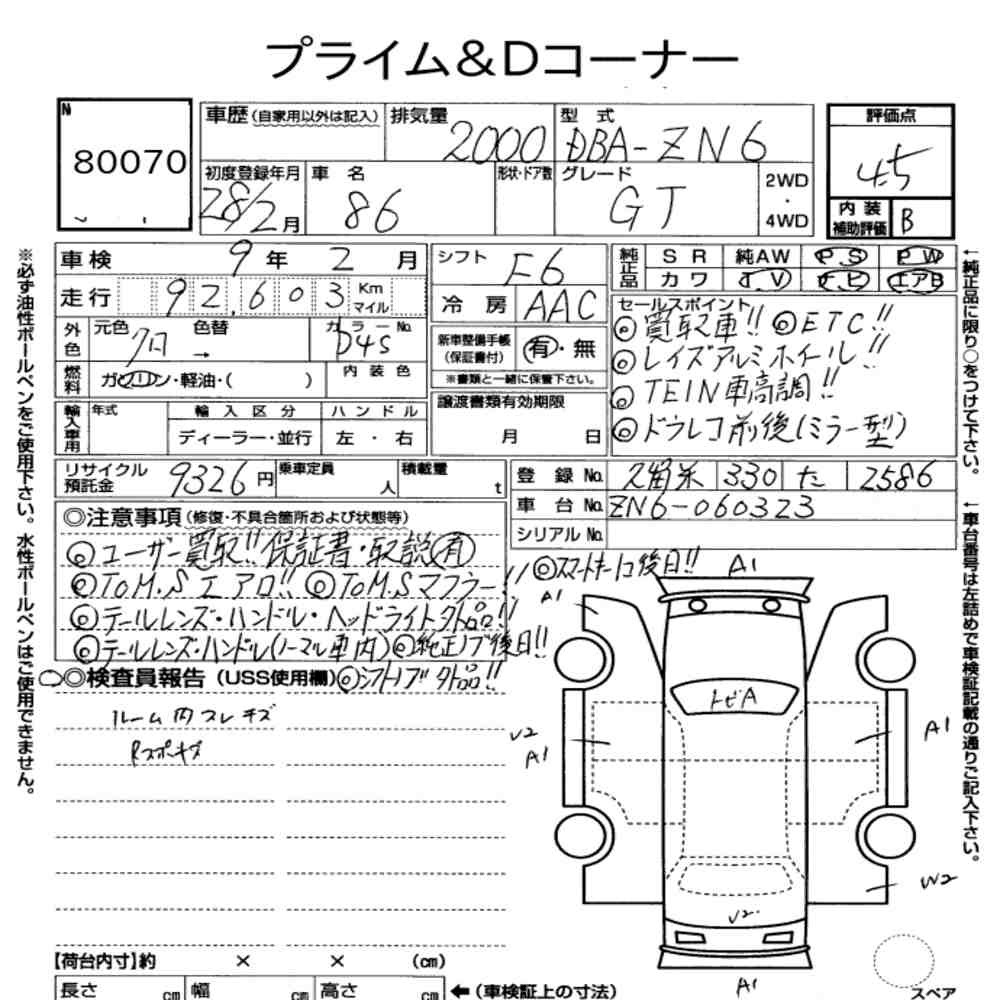 プライム&Dコーナー
N
80070
車歴(自家用以外は記入)
排気量
2000
型 式
DBA-ZN6
評価点
4.5
初度登録年月
28/2月
車 名
86
形状・ドア数
グレード
GT
2WD
・
4WD
内 装
補助評価
B
車 検
9 年 2 月
シフト
F6
純正品
SR 純AW PS PW
カワ TV ナビ エアB
走 行
92,603
Km
マイル
冷 房
AAC
セールスポイント
◎買取車!! ◎ETC!!
◎レイズアルミホイール!!
◎TEIN車高調!!
◎ドラレコ前後(ミラー型)
外色
元色
クロ
色替
→
カラーNo.
D4S
新車整備手帳
(保証書付)
有・無
※書類と一緒に保管下さい。
燃料
ガソリン・軽油・( )
内 装 色
譲渡書類有効期限
月 日
輸入車用
年式
輸 入 区 分
ディーラー・並行
ハ ン ド ル
左 ・ 右
リサイクル
預託金
9326円
乗車定員
人
積載量
t
登 録 No.
330 た 2586
車 台 No.
ZN6-060323
シリアル No.
◎注意事項(修復・不具合箇所および状態等)
◎ユーザー買取!!保証書・取説有
◎TOM.Sエアロ!! ◎TOM.Sマフラー!! ◎スマートキー1コ後日!!
◎テールレンズ・ハンドル・ヘッドライト外品!!
◎テールレンズ・ハンドル(ノーマル車内) ◎純正ノブ後日!!
◎検査員報告(USS使用欄) ◎シフトノブ外品!!
ルーム内コレキズ
Rスポキズ
A1
A1
トビA
V2
A1
A1
W2
V2
A1
スペア
【荷台内寸】約 × × (cm)
長さ cm 幅 cm 高さ cm ←(車検証上の寸法)
※必ず油性ボールペンをご使用下さい。水性ボールペンはご使用できません。
←純正品に限り○をつけて下さい。
←車台番号は左詰めで車検証記載の通りご記入下さい。